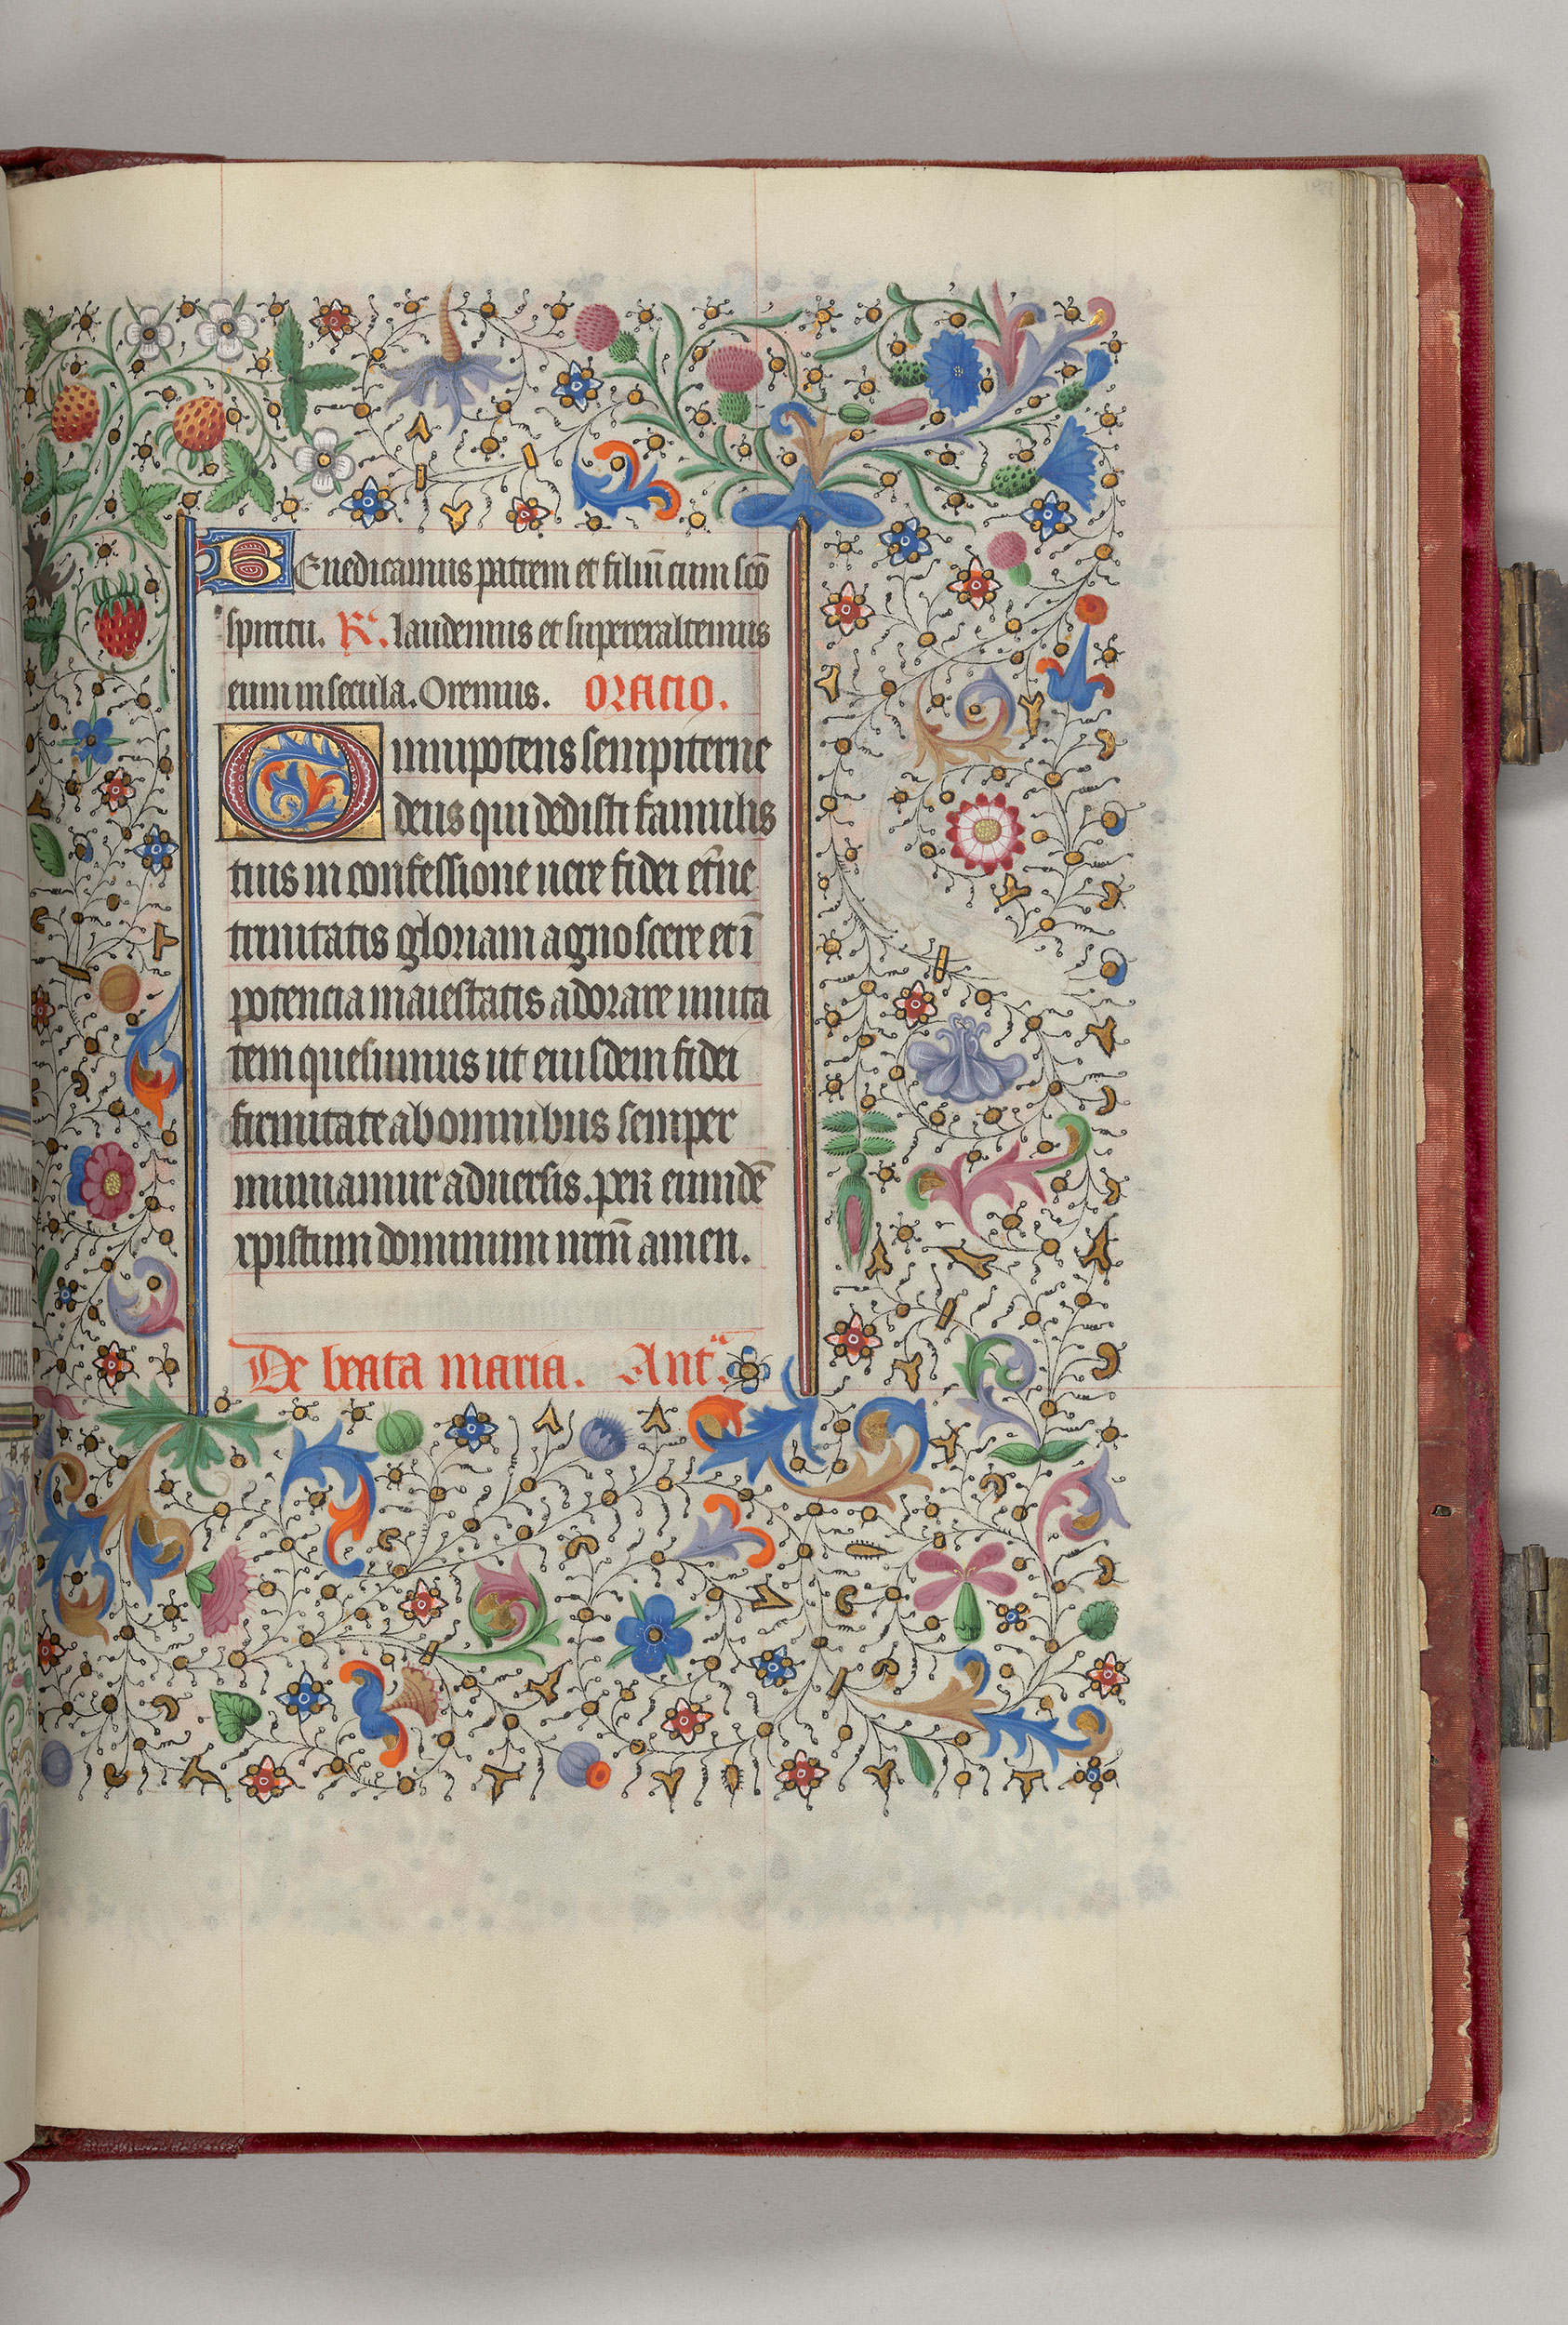 Benedicamus patrem et filiū cum scō
spiritu. R. laudemus et superexaltemus
eum in secula. Oremus. Oracio.
Omnipotens sempiterne
deus qui dedisti famulis
tuis in confessione uere fidei et̄ne
trinitatis gloriam agnoscere et ī
potencia maiestatis adorare unita
tem quesumus ut eiusdem fidei
firmitate ab omnibus semper
muniamur aduersis. per eumdē
xpistum dominum nrm̄ amen.
De beata maria. Antᵃ.